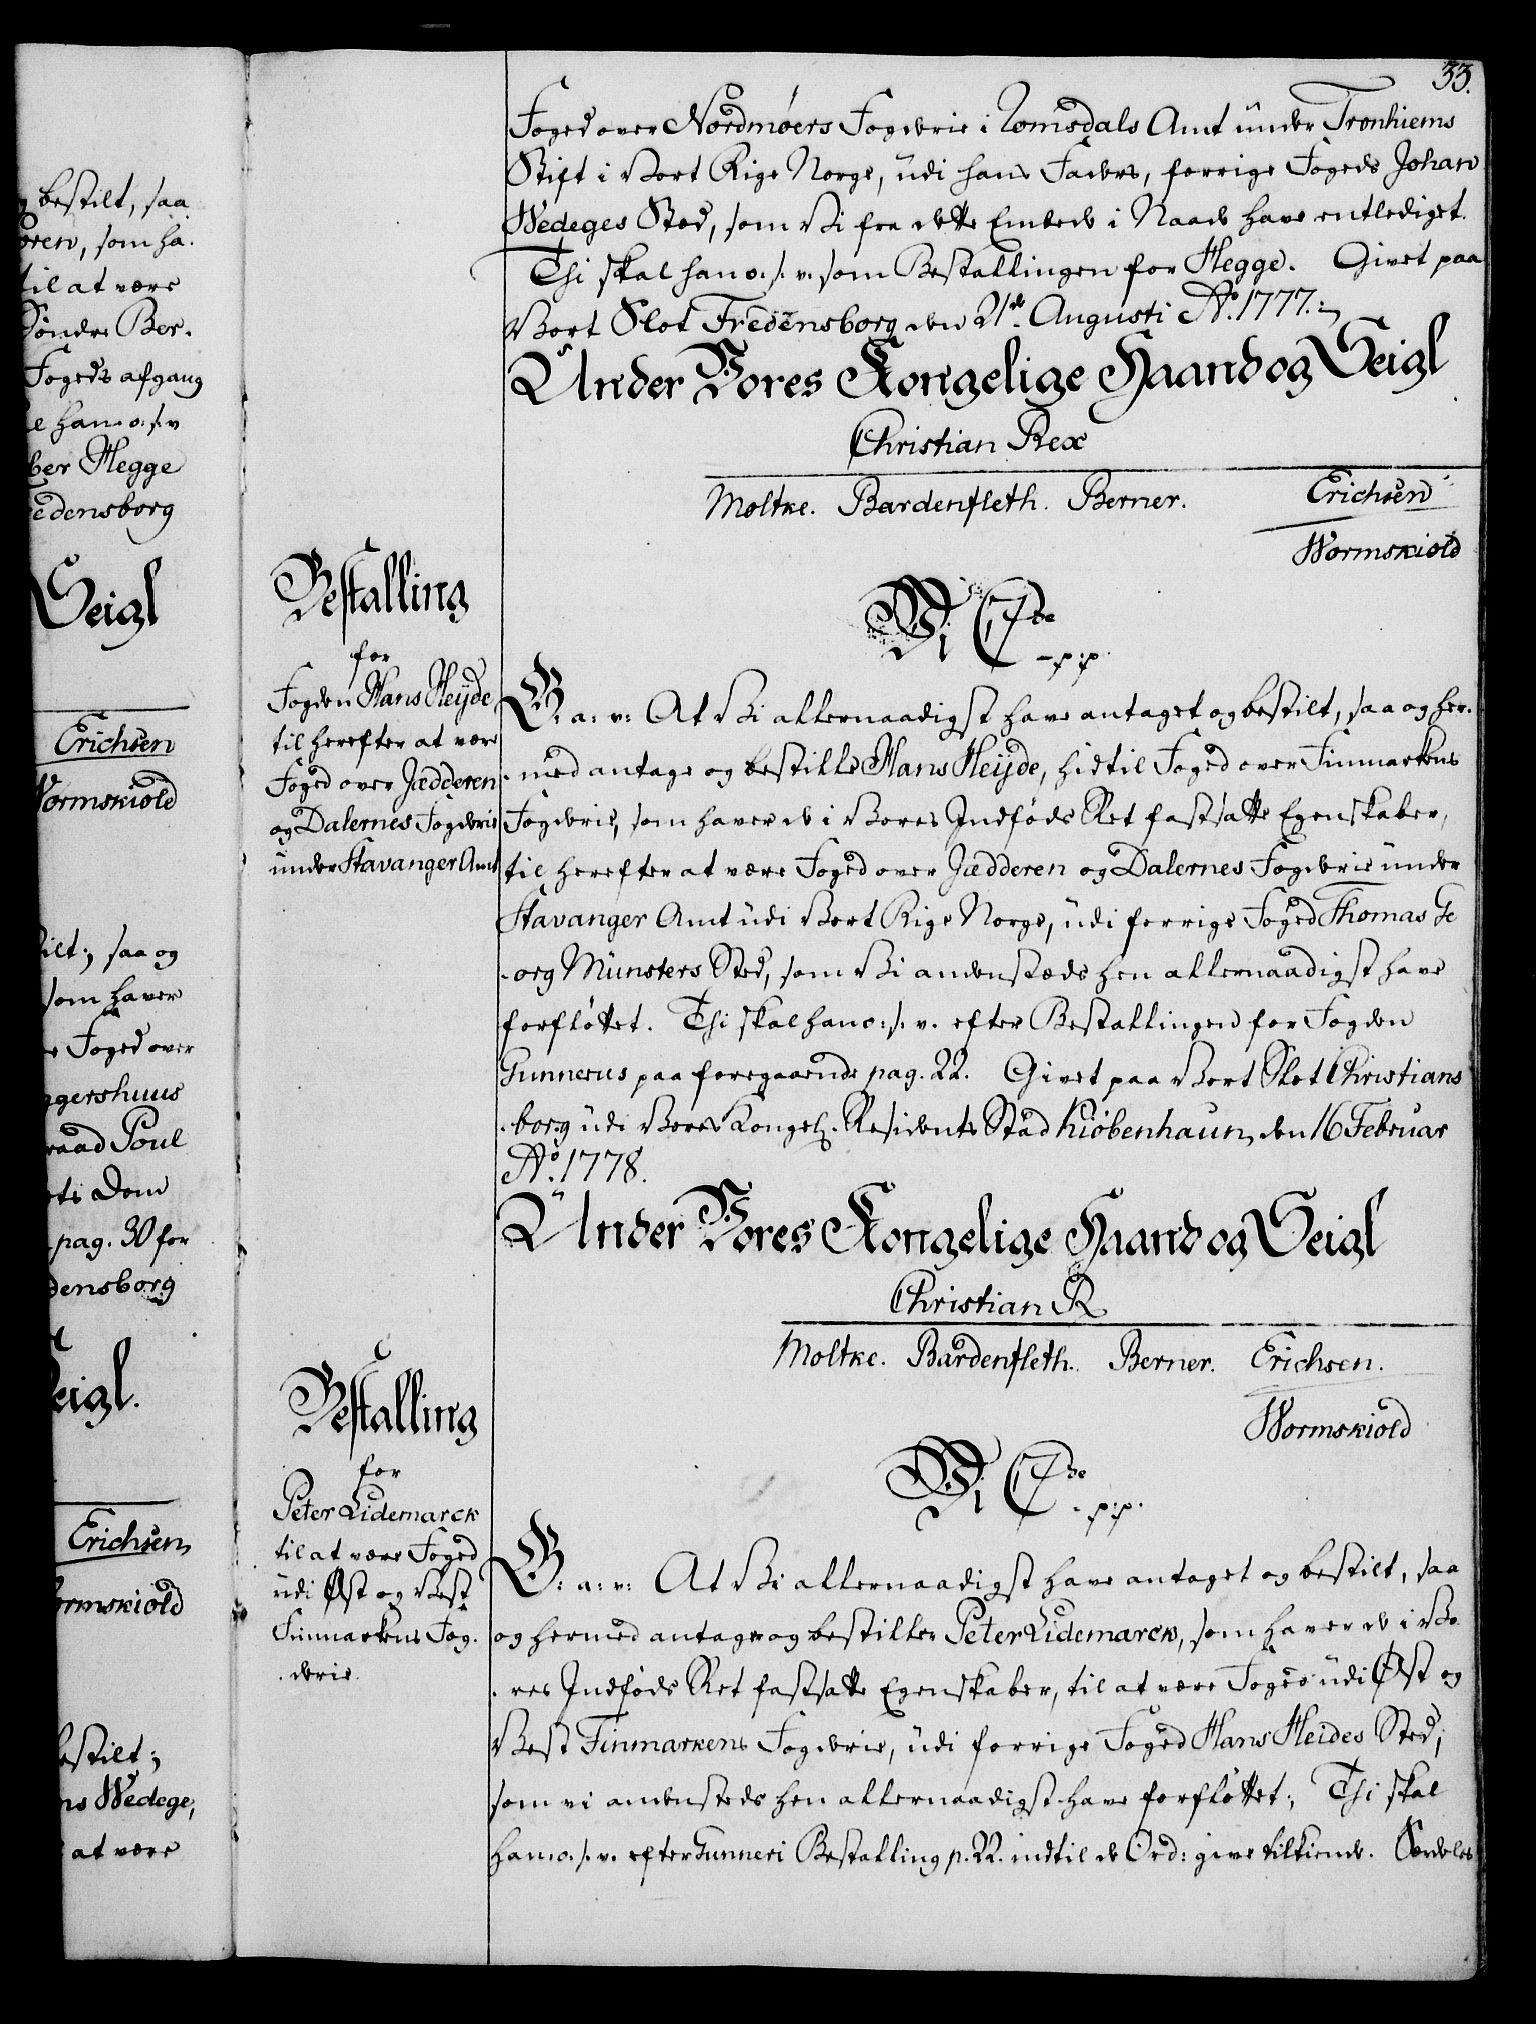 33.
Foged over Nordmøers Fogderie i Romsdals Amt under Tronhiems
Stift i Vort Rige Norge, udi hans Faders, forrige Fogeds Johan
Wedeges Sted, som Vi fra dette Embede i Naade have entlediget.
Thi skal han o. s. v. som Bestallingen for Hegge. Givet paa
Vort Slot Fredensborg den 21de Augusti Ao. 1777.
Under Vores Kongelige Haand og Seigl
Christian Rex
Moltke. Bardenfleth. Berner. Erichsen
Wormskiold
Bestalling
for
Fogden Hans Heijde
til herefter at være
Foged over Jædderen
og Dalernes Fogderie
under Stavanger Amt
Vi C 7de
- p: p.
G: a: v: At Vi allernaadigst have antaget og bestilt, saa og her-
-med antage og bestille Hans Heijde, hidtil Foged over Finmarkens
Fogderie, som haver de i Vores Indføds Ret fastsatte Egenskaber,
til herefter at være Foged over Jædderen og Dalernes Fogderie under
Stavanger Amt udi Vort Rige Norge, udi forrige Foged Thomas Ge
-org Münsters Sted, som Vi andenstæds hen allernaadigst have
forfløttet. Thi skal han o: s. v. efter Bestallingen for Fogden
Gunnerus paa foregaaende pag. 22. Givet paa Vort Slot Christians
-borg udi Vores Kongel. Residents Stad Kiøbenhaun, den 16 Februar
Ao. 1778.
Under Vores Kongelige Haand og Seigl
Christian R
Moltke. Bardenfleth. Berner. Erichsen.
Wormskiold
Bestalling
for
Peter Lidemarck
til at være Foged
udi Øst og Vest
Finmarkens Fog-
-derie.
Vi C 7de
- p: p.
G: a: v: At Vi allernaadigst have antaget og bestilt, saa
og hermed antager og bestiller Peter Lidemarck, som haver de i Vo
-res Indføds Ret fastsatte Egenskaber, til at være Foged udi Øst og
Vest Finmarkens Fogderie, udi forrige Foged Hans Heides Sted,
som vi andensteds hen allernaadigst have forfløttet; Thi skal
han o. s. v. efter Gunneri Bestalling p. 22. indtil de Ord: give tilkiende. Særdeles
g bestilt, saa
oren, som ha-
til at være
Søndre Ber-
Fogeds afgang
e han o: s. v
ber Hegge
edensborg
Seigl
Erichsen
Wormskiold
ilt; saa og
som haver
e Foged over
ggershuus
raad Poul
ets Dom
pag. 30 for
densborg
eigl.
Erichsen
ormskiold
bestilt;
ns Wedege,
at være